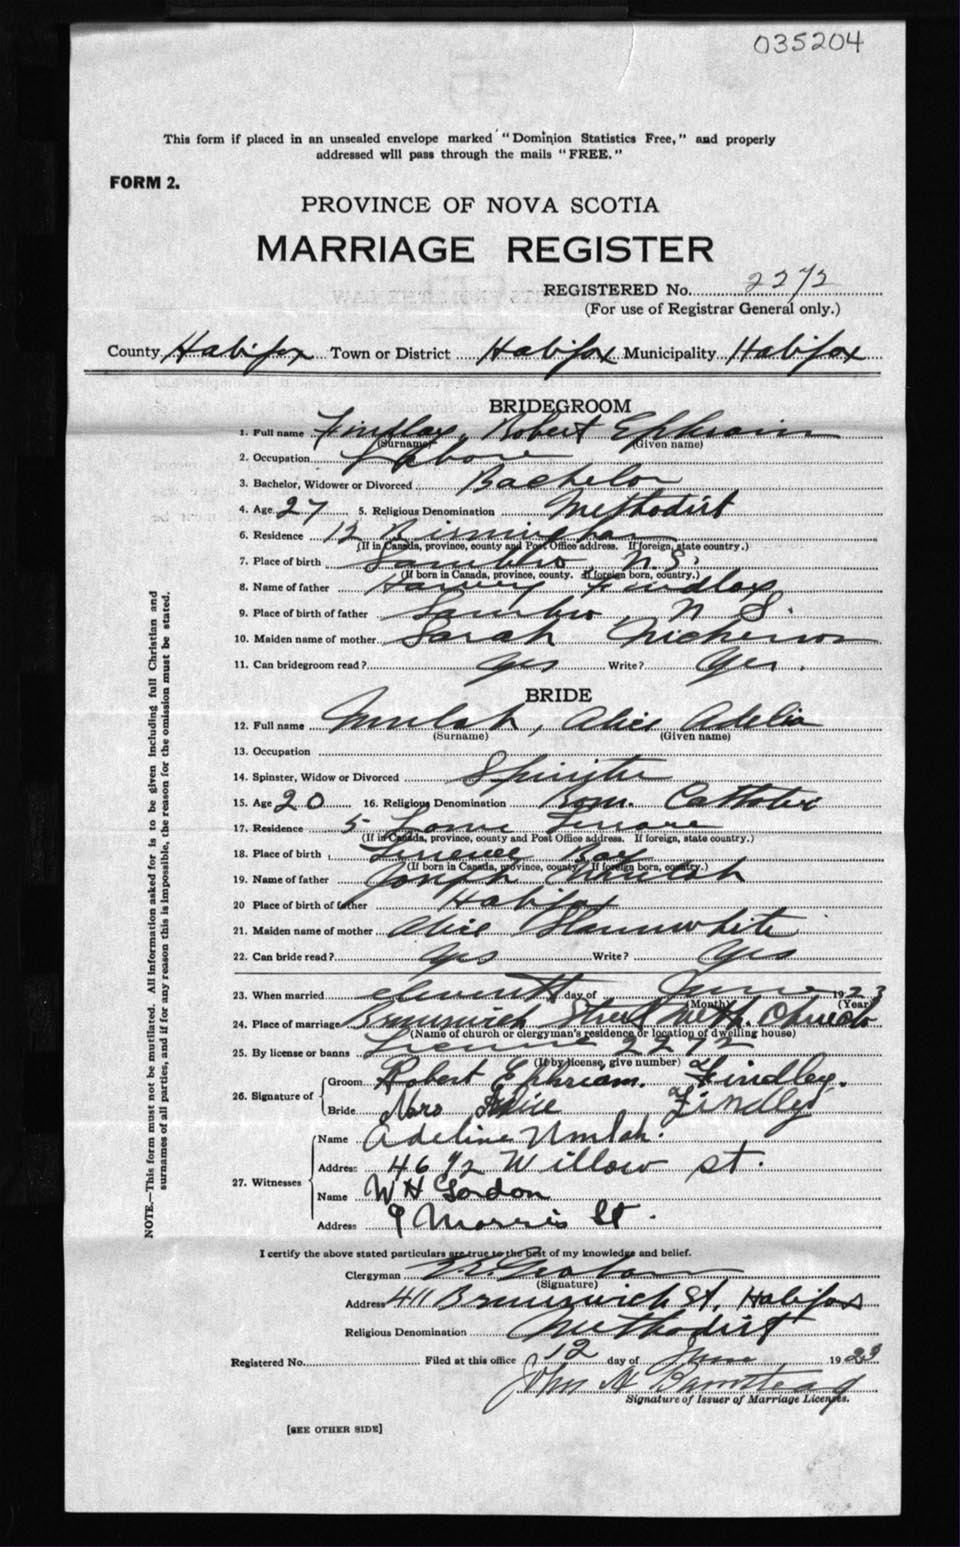 035204
This form if placed in an unsealed envelope marked "Dominion Statistics Free," and properly
addressed will pass through the mails "FREE."
FORM 2.
PROVINCE OF NOVA SCOTIA
MARRIAGE REGISTER
REGISTERED No. 2272
(For use of Registrar General only.)
County Halifax Town or District Halifax Municipality Halifax
BRIDEGROOM
1. Full name Findlay, Robert Ephraim
(Surname) (Given name)
2. Occupation Labore
3. Bachelor, Widower or Divorced Bachelor
4. Age 27 5. Religious Denomination Methodist
6. Residence 12 Birmingham
(If in Canada, province, county and Post Office address. If foreign, state country.)
7. Place of birth Sambro, N.S.
(If born in Canada, province, county. If foreign born, country.)
8. Name of father Harvey Findlay
9. Place of birth of father Sambro, N S.
10. Maiden name of mother Sarah Nickerson
11. Can bridegroom read? Yes Write? Yes.
BRIDE
12. Full name Umlah, Alice Adelia
(Surname) (Given name)
13. Occupation
14. Spinster, Widow or Divorced Spinster
15. Age 20 16. Religious Denomination Rom. Catholic
17. Residence 5 Lorne Terrace
(If in Canada, province, county and Post Office address. If foreign, state country.)
18. Place of birth Bay
(If born in Canada, province, county. If foreign born, country.)
19. Name of father Joseph Umlah
20 Place of birth of father Halifax
21. Maiden name of mother Alice Slaunwhite
22. Can bride read? Yes Write? Yes
23. When married eleventh day of June 1923
(Month) (Year)
24. Place of marriage Brunswick Street Meth. Church
(Name of church or clergyman's residence or location of dwelling house)
25. By license or banns License 2272
(If by license, give number)
26. Signature of Groom Robert Ephriam. Findley.
Bride Mrs Alice Findley
27. Witnesses Name Adeline Umlah.
Address 46 1/2 Willow st.
Name W H Gordon
Address 9 Morris St.
I certify the above stated particulars are true to the best of my knowledge and belief.
Clergyman Graham
(Signature)
Address 411 Brunswick St, Halifax
Religious Denomination Methodist
Registered No. Filed at this office 12 day of June 1923
John A Barnstead
Signature of Issuer of Marriage Licenses.
[SEE OTHER SIDE]
NOTE.—This form must not be mutilated. All information asked for is to be given including full Christian and
surnames of all parties, and if for any reason this is impossible, the reason for the omission must be stated.